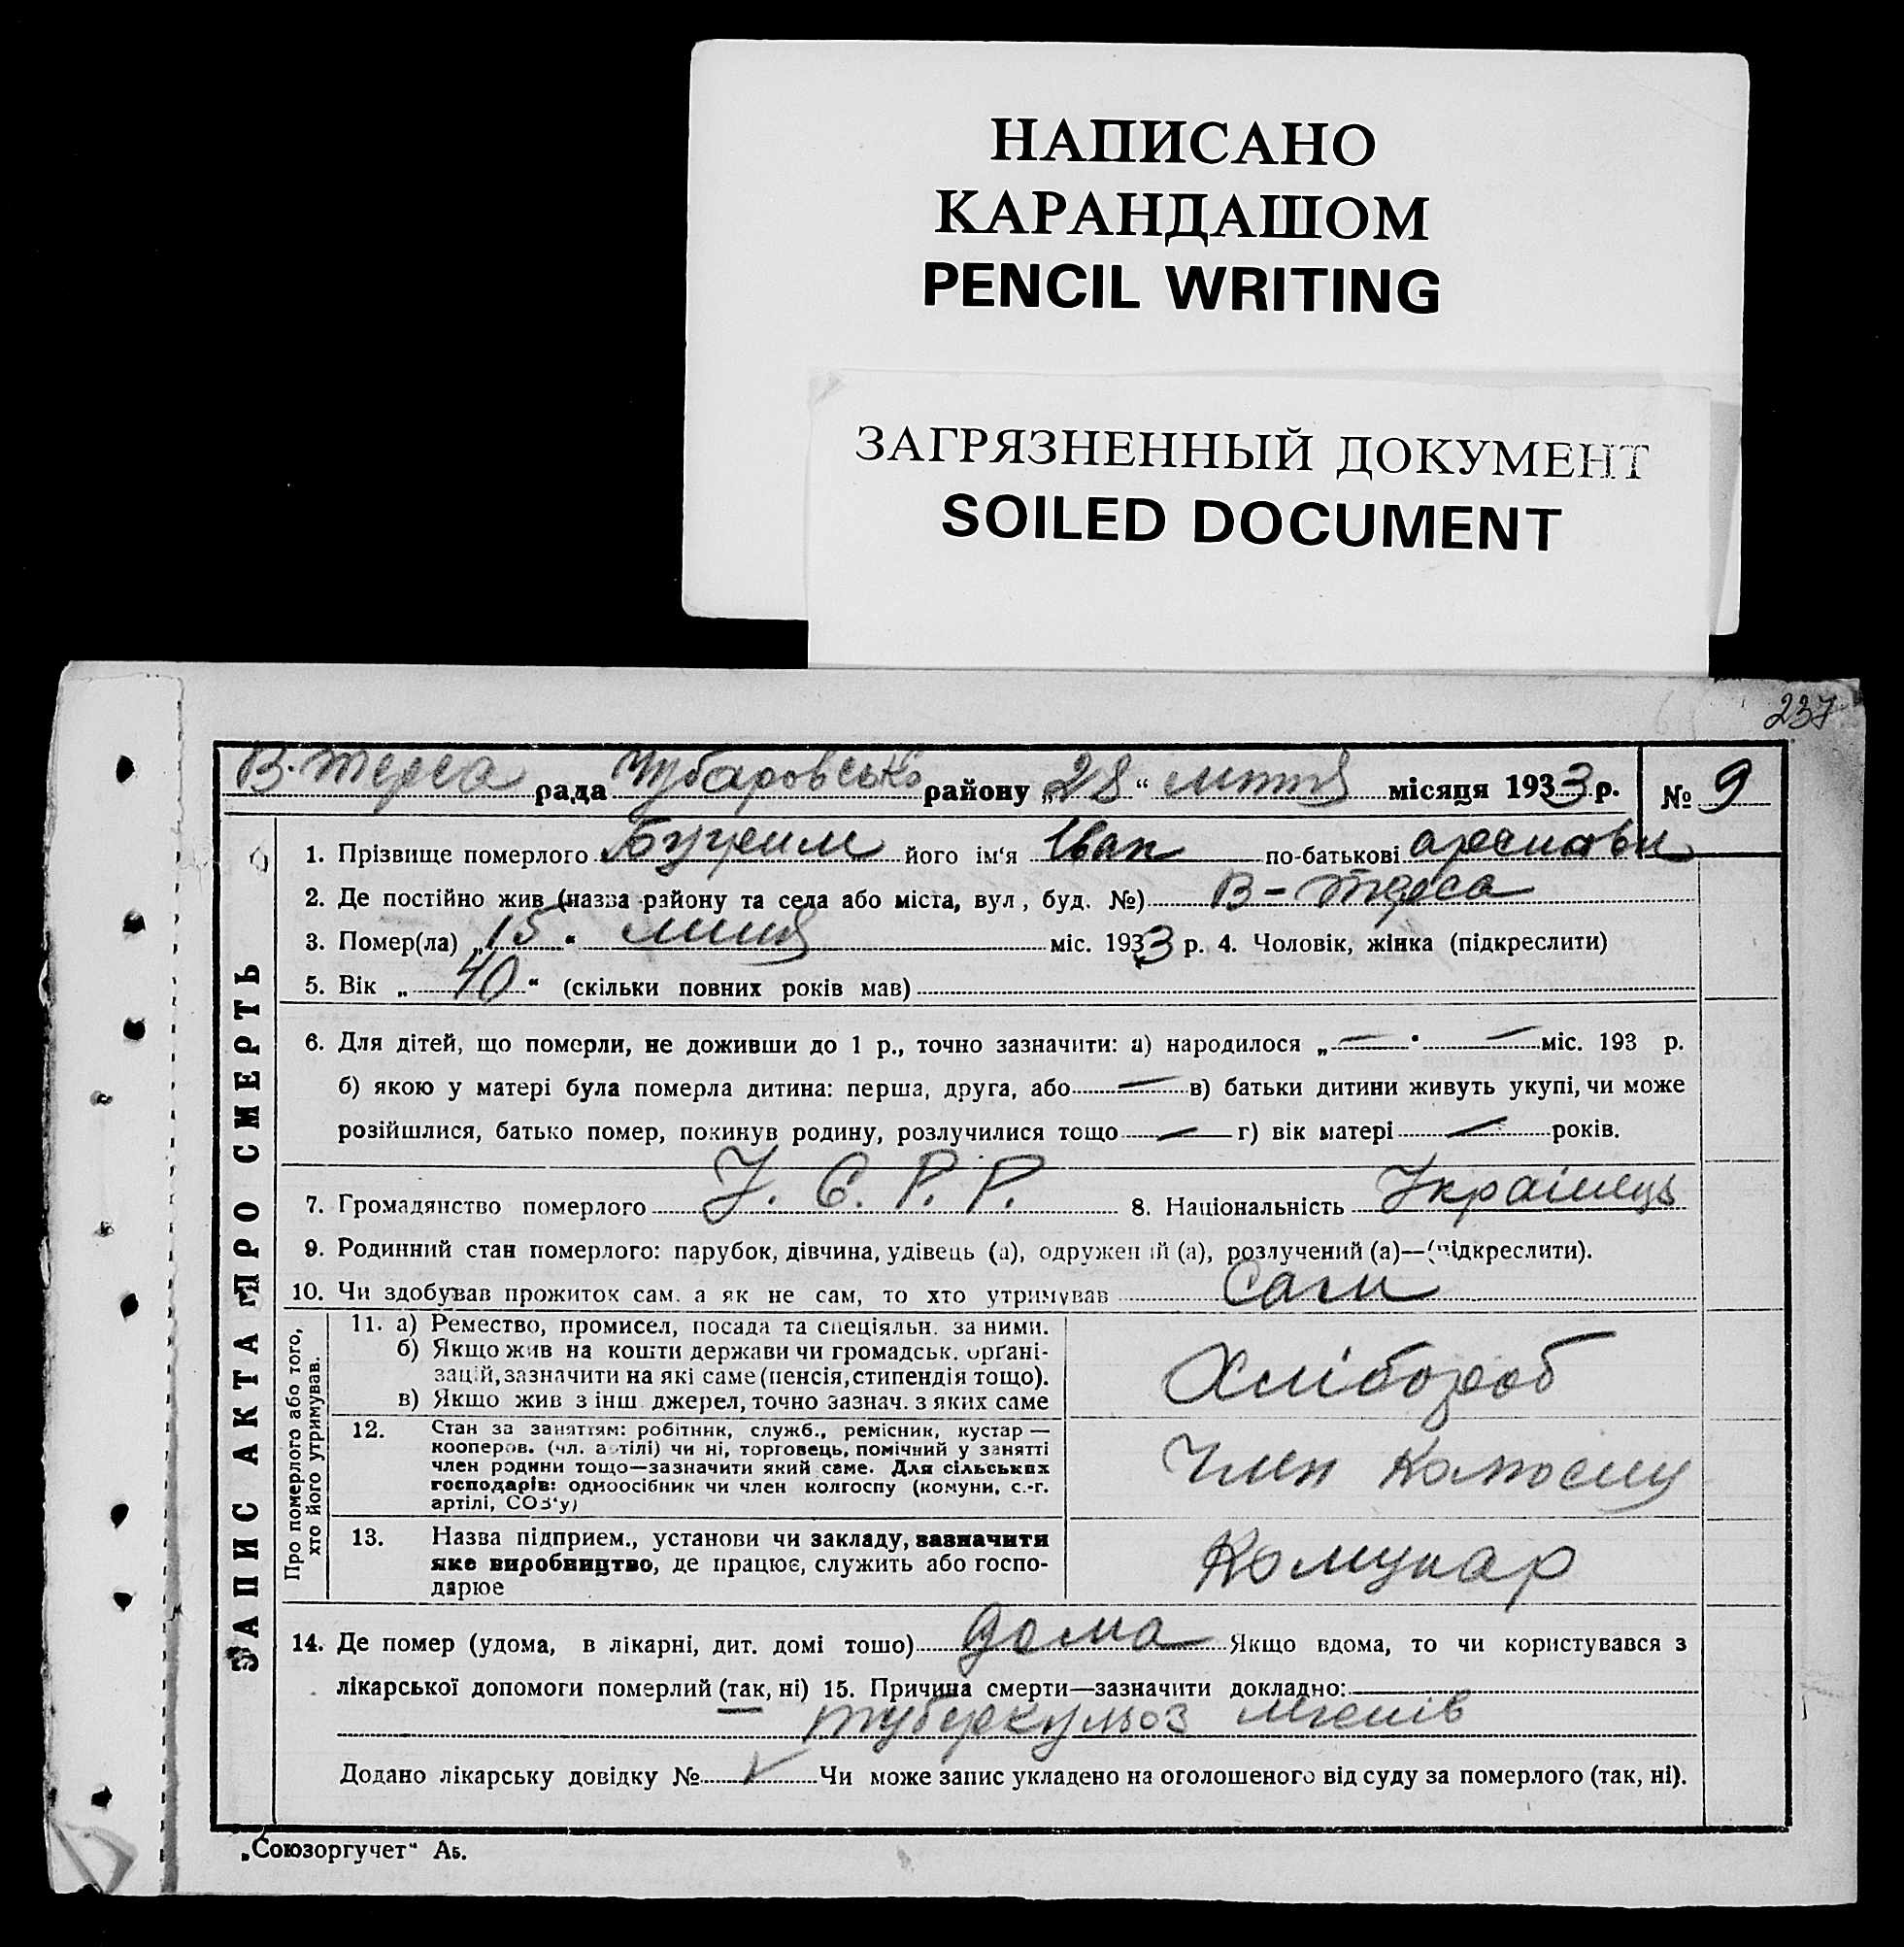 НАПИСАНО
КАРАНДАШОМ
PENCIL WRITING
ЗАГРЯЗНЕННЫЙ ДОКУМЕНТ
SOILED DOCUMENT
237
В-Терса рада Чубаровсько району „28“ місяця 1933 р. № 9
1. Прізвище померлого його ім‘я Іван по-батькові
2. Де постійно жив (назва району та села або міста, вул, буд. №) В-Терса
3. Помер(ла) „15“ міс. 1933 р. 4. Чоловік, жінка (підкреслити)
5. Вік „40“ (скільки повних років мав)
6. Для дітей, що померли, не доживши до 1 р., точно зазначити: а) народилося „—“ — міс. 193 р.
б) якою у матері була померла дитина: перша, друга, або — в) батьки дитини живуть укупі, чи може
розійшлися, батько помер, покинув родину, розлучилися тощо — г) вік матері — років.
7. Громадянство померлого У. С. Р. Р. 8. Національність Українець
9. Родинний стан померлого: парубок, дівчина, удівець (а), одружений (а), розлучений (а)—(підкреслити).
10. Чи здобував прожиток сам, а як не сам, то хто утримував Сам
ЗАПИС АКТА ПРО СМЕРТЬ
Про померлого або того,
хто його утримував.
11. а) Ремество, промисел, посада та спеціяльн. за ними.
б) Якщо жив на кошти держави чи громадськ. орґані-
зацій, зазначити на які саме (пенсія, стипендія тощо).
в) Якщо жив з інш. джерел, точно зазнач. з яких саме
Хлібороб
12. Стан за заняттям: робітник, служб., ремісник, кустар —
кооперов. (чл. артілі) чи ні, торговець, помічний у занятті
член родини тощо—зазначити який саме. Для сільських
господарів: одноосібник чи член колгоспу (комуни, с.-г.
артілі, СОЗ‘у)
Член Колгоспу
13. Назва підприєм., установи чи закладу, зазначити
яке виробництво, де працює, служить або госпо-
дарює
Комунар
14. Де помер (удома, в лікарні, дит. домі тошо) дома Якщо вдома, то чи користувався з
лікарської допомоги померлий (так, ні) 15. Причина смерти—зазначити докладно:
туберкульоз легенів
Додано лікарську довідку № Чи може запис укладено на оголошеного від суду за померлого (так, ні).
„Союзоргучет“ Аб.